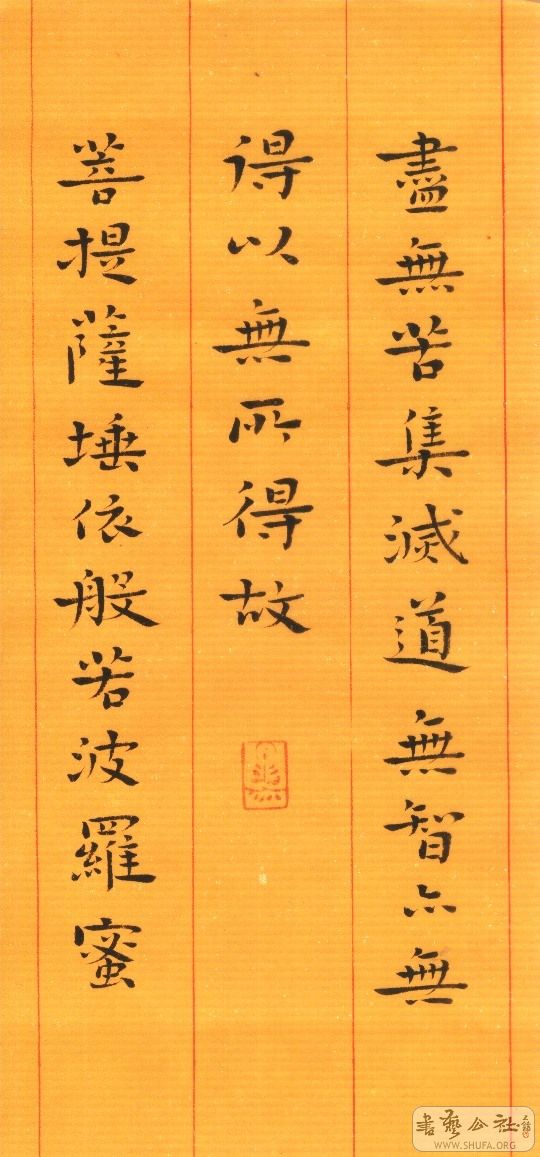 盡無苦集滅道無智亦無
得以無所得故
菩提薩埵依般若波羅蜜
書藝公社
WWW.SHUFA.ORG